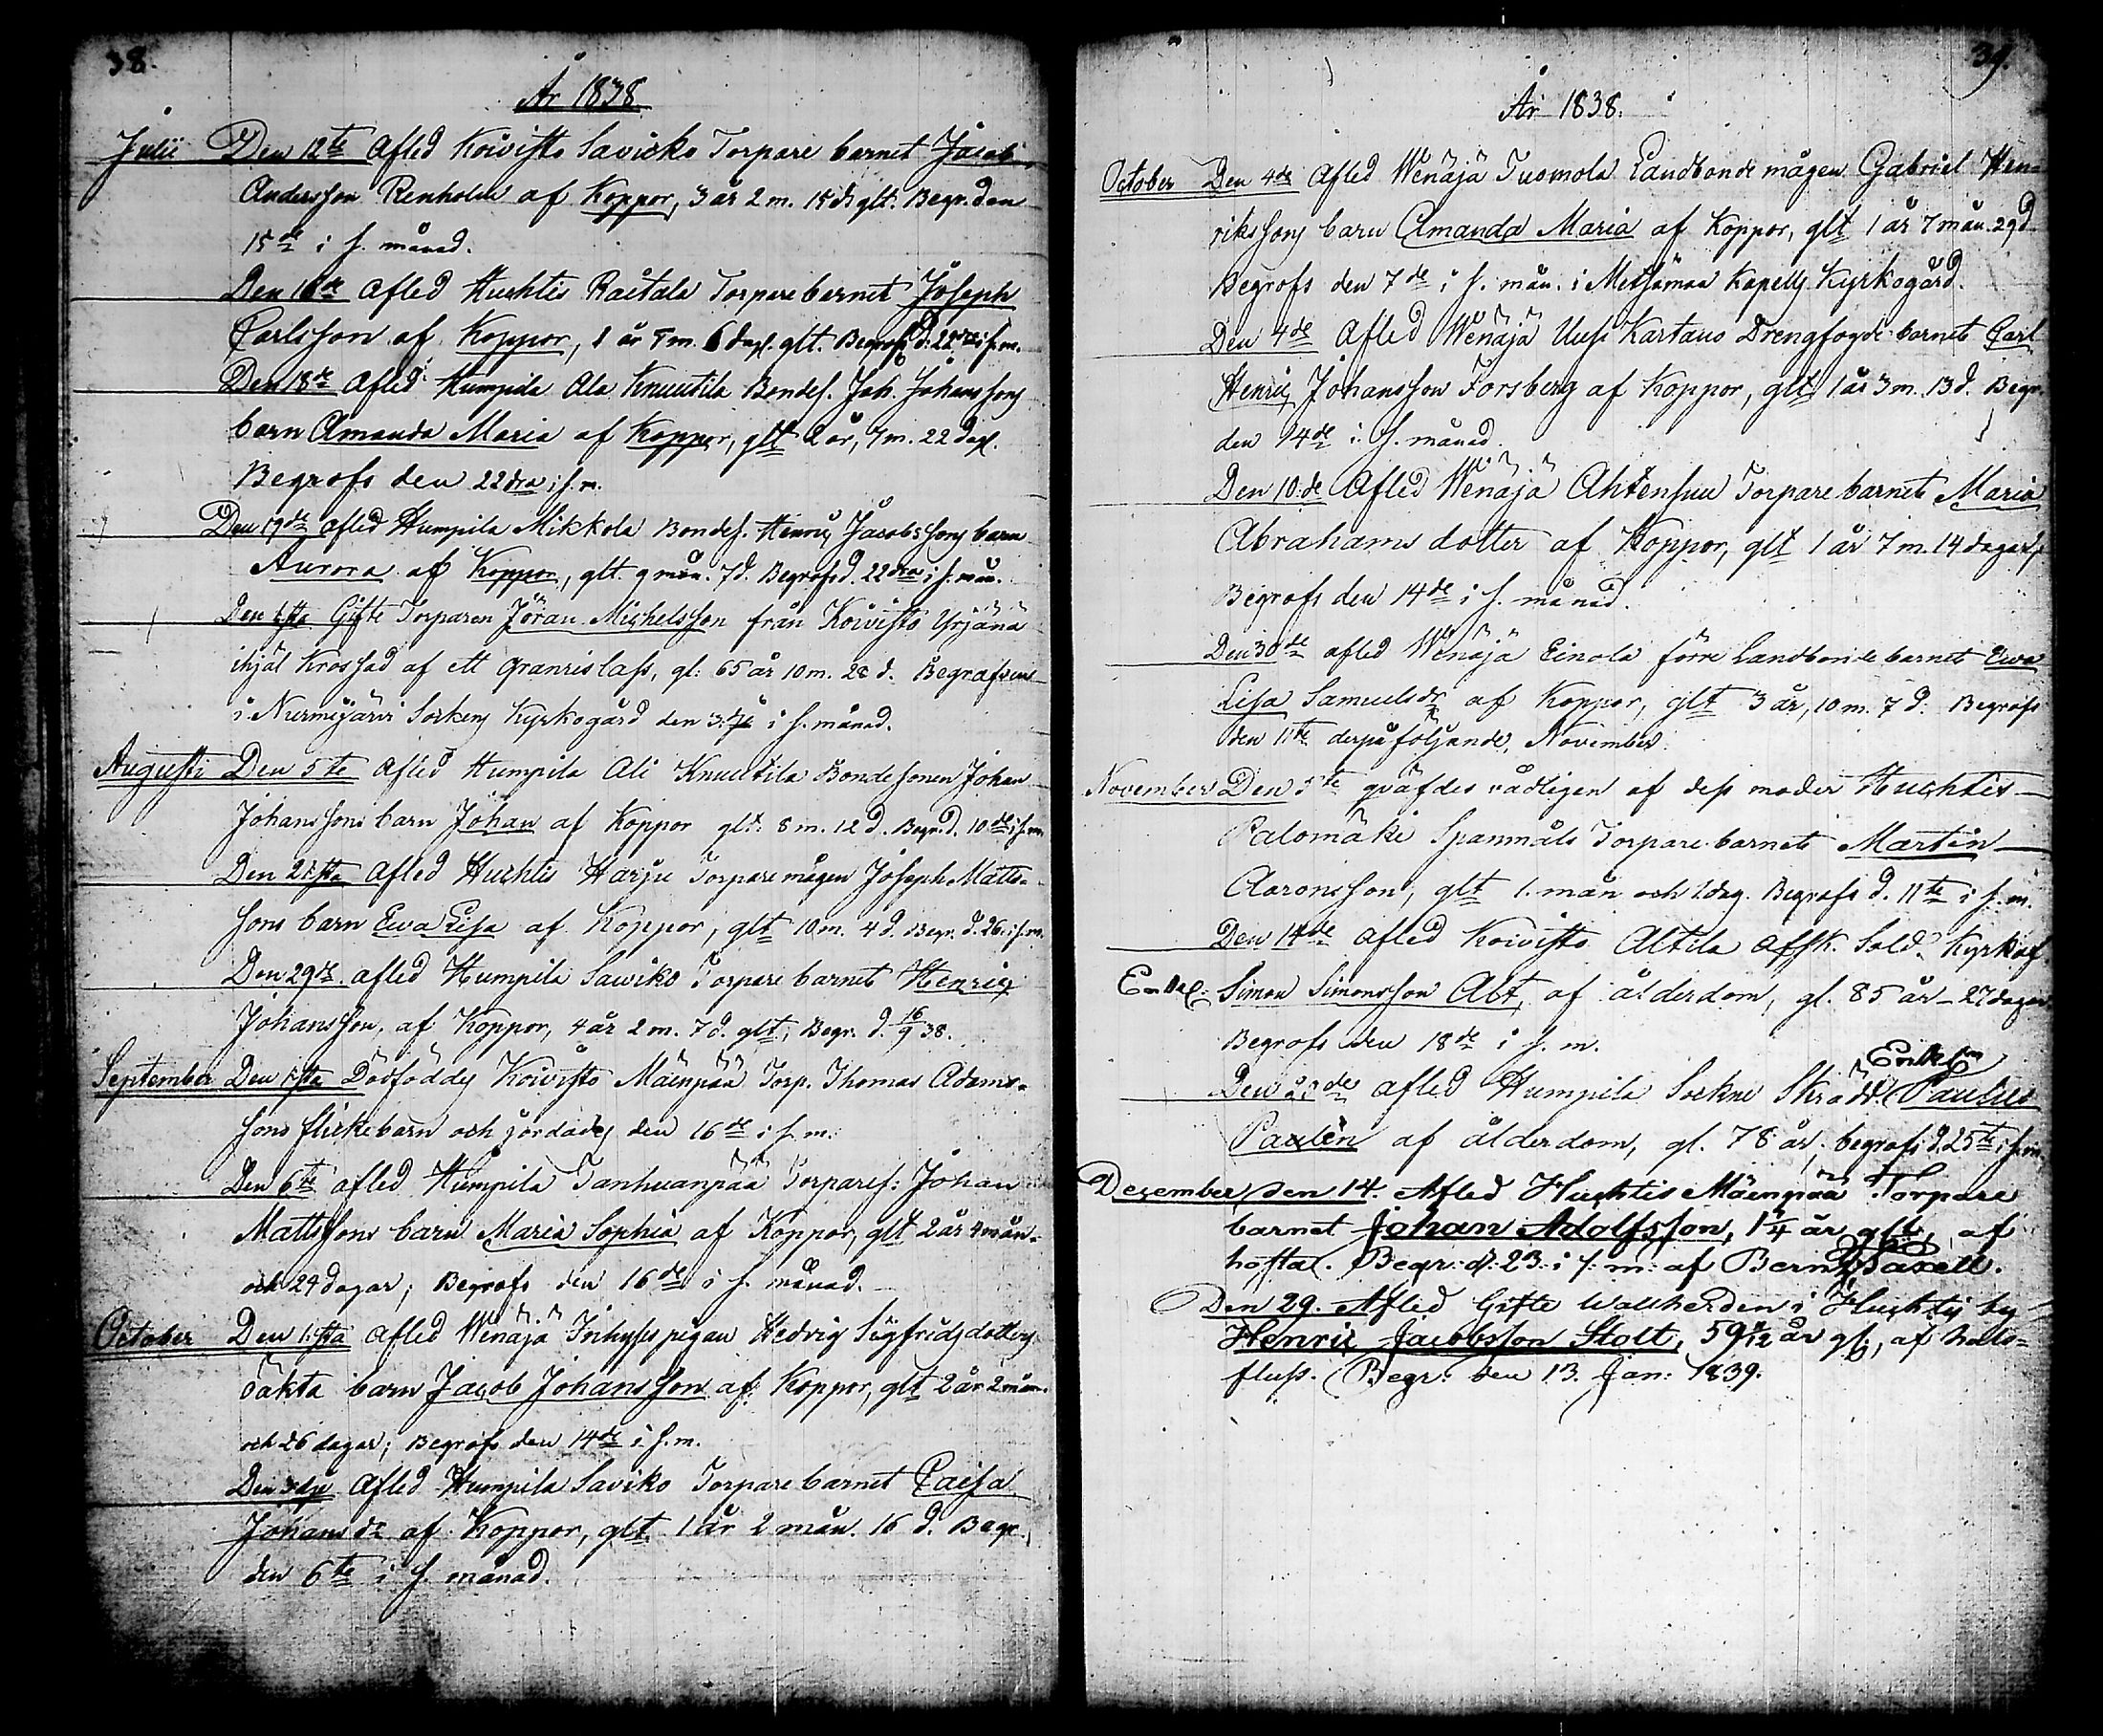 38.
År 1838
Julii Den 12te Afled Koivisto Savicko Torpare barnet Jacob
Andersson Renholm af Koppor, 3 år 2 m. 15 d. glt. Begr. den
15de i s. månad.
Den 16de Afled Huhtis Raitala Torpare barnet Joseph
Carlsson af Koppor, 1 år 5 m. 6 dag. glt. Begrofs d: 22dra i s. m.
Den 18de Afled Humpila Ala Knuutila Bondes. Joh. Johanssons
barn Amanda Maria af Koppor, glt 2 år, 7 m. 22 dag.
Begrofs den 22dra i s. m.
Den 19de afled Humpila Mikkola Bondes. Henric Jacobssons barn
Aurora af Koppor, glt. 9 mån. 7 d. Begrofs d. 22dra i s. mån.
Den 1sta Gifte Torparen Jöran Michelsson från Koivisto Yrjänä
ihjäl krossad af ett granrislass, gl: 65 år 10 m. 20 d. Begrafven
i Nurmijärvi Sockens Kyrkogård den 3:dje i s. månad.
Augusti Den 5te Afled Humpila Ali Knuutila Bondesonen Johan
Johanssons barn Johan af Koppor glt: 8 m. 12 d. Begr. d. 10de i s. m.
Den 21sta Afled Huhtis Harju Torpare mågen Joseph Matts-
sons barn Ewa Lisa af Koppor, glt 10 m. 4 d. Begr. d. 26. i s. m.
Den 29de afled Humpila Sawiko Torpare barnet Henric
Johansson, af Koppor, 4 år 2 m. 7 d. glt; Begr. d. 16/9 38.
September Den 1sta Dödföddes Koivisto Mäenpää Torp. Thomas Adams-
sons flickebarn och jordades den 16de i s. m.
Den 6te afled Humpila Tanhuanpää Torpares: Johan
Mattssons barn Maria Sophia af Koppor, glt 2 år 4 mån.
och 24 dagar; Begrofs den 16de i s. månad.
October Den 1:sta Afled Wenäjä Inhyses pigan Hedvig Sigfridsdotters
oäkta barn Jacob Johansson af Koppor, glt 2 år 2 mån.
och 26 dagar; Begrofs den 14de i s. m.
Den 3dje Afled Humpila Saviko Torpare barnet Caisa
Johansdr af Koppor, glt 1 år 2 mån. 16 d. Begr.
den 6te i s. månad.
39.
År 1838.
October Den 4de Afled Wenäjä Tuomola Landbonde mågen Gabriel Hen-
rikssons barn Amanda Maria af Koppor, glt 1 år 7 mån. 29 d.
Begrofs den 7de i s. mån. i Metsämaa Kapells Kyrkogård.
Den 4de Afled Wenäjä Uusi Kartano Drengfogde barnet Carl
Henric Johansson Forsberg af Koppor, glt 1 år 3 m. 13 d. Begr.
den 14de i s. månad.
Den 10:de Afled Wenäjä Ahtensuu Torpare barnet Maria
Abrahams dotter af Koppor, glt 1 år 7 m. 14 dagar,
Begrofs den 14de i s. månad.
Den 30de afled Wenäjä Einola förre Landbonde barnet Ewa
Lisa Samuelsdr af Koppor, glt 3 år, 10 m. 7 d. Begrofs
den 11te derpåföljande, November.
November Den 5te qväfdes vådligen af dess moder Huhtis
Palomäki Spanmåls Torpare barnet Martin
Aaronsson, glt 1. mån och 1 dag. Begrofs d. 11te i s. m.
Den 14de afled Koivisto Altila Afsk. Sold. Kyrkof.
Simon Simonsson Alt, af ålderdom, gl. 85 år - 27 dagar
Begrofs den 18de i s. m.
Den 23de afled Humpila Sockne Skrädd. Paulus
Paulen af ålderdom, gl. 78 år, begrofs d. 25te i s. m.
December den 14. Afled Huhtis Mäenpää Torpare
barnet Johan Adolfsson, 1 1/4 år glt, af
hosta. Begr: d: 23: i s: m: af Bernh. Saxell.
Den 29. Afled Gifte Wallherden i Huhtis by
Henric Jacobsson Stolt, 59 11/12 år gl:, af hals-
fluss. Begr: den 13. Jan: 1839.